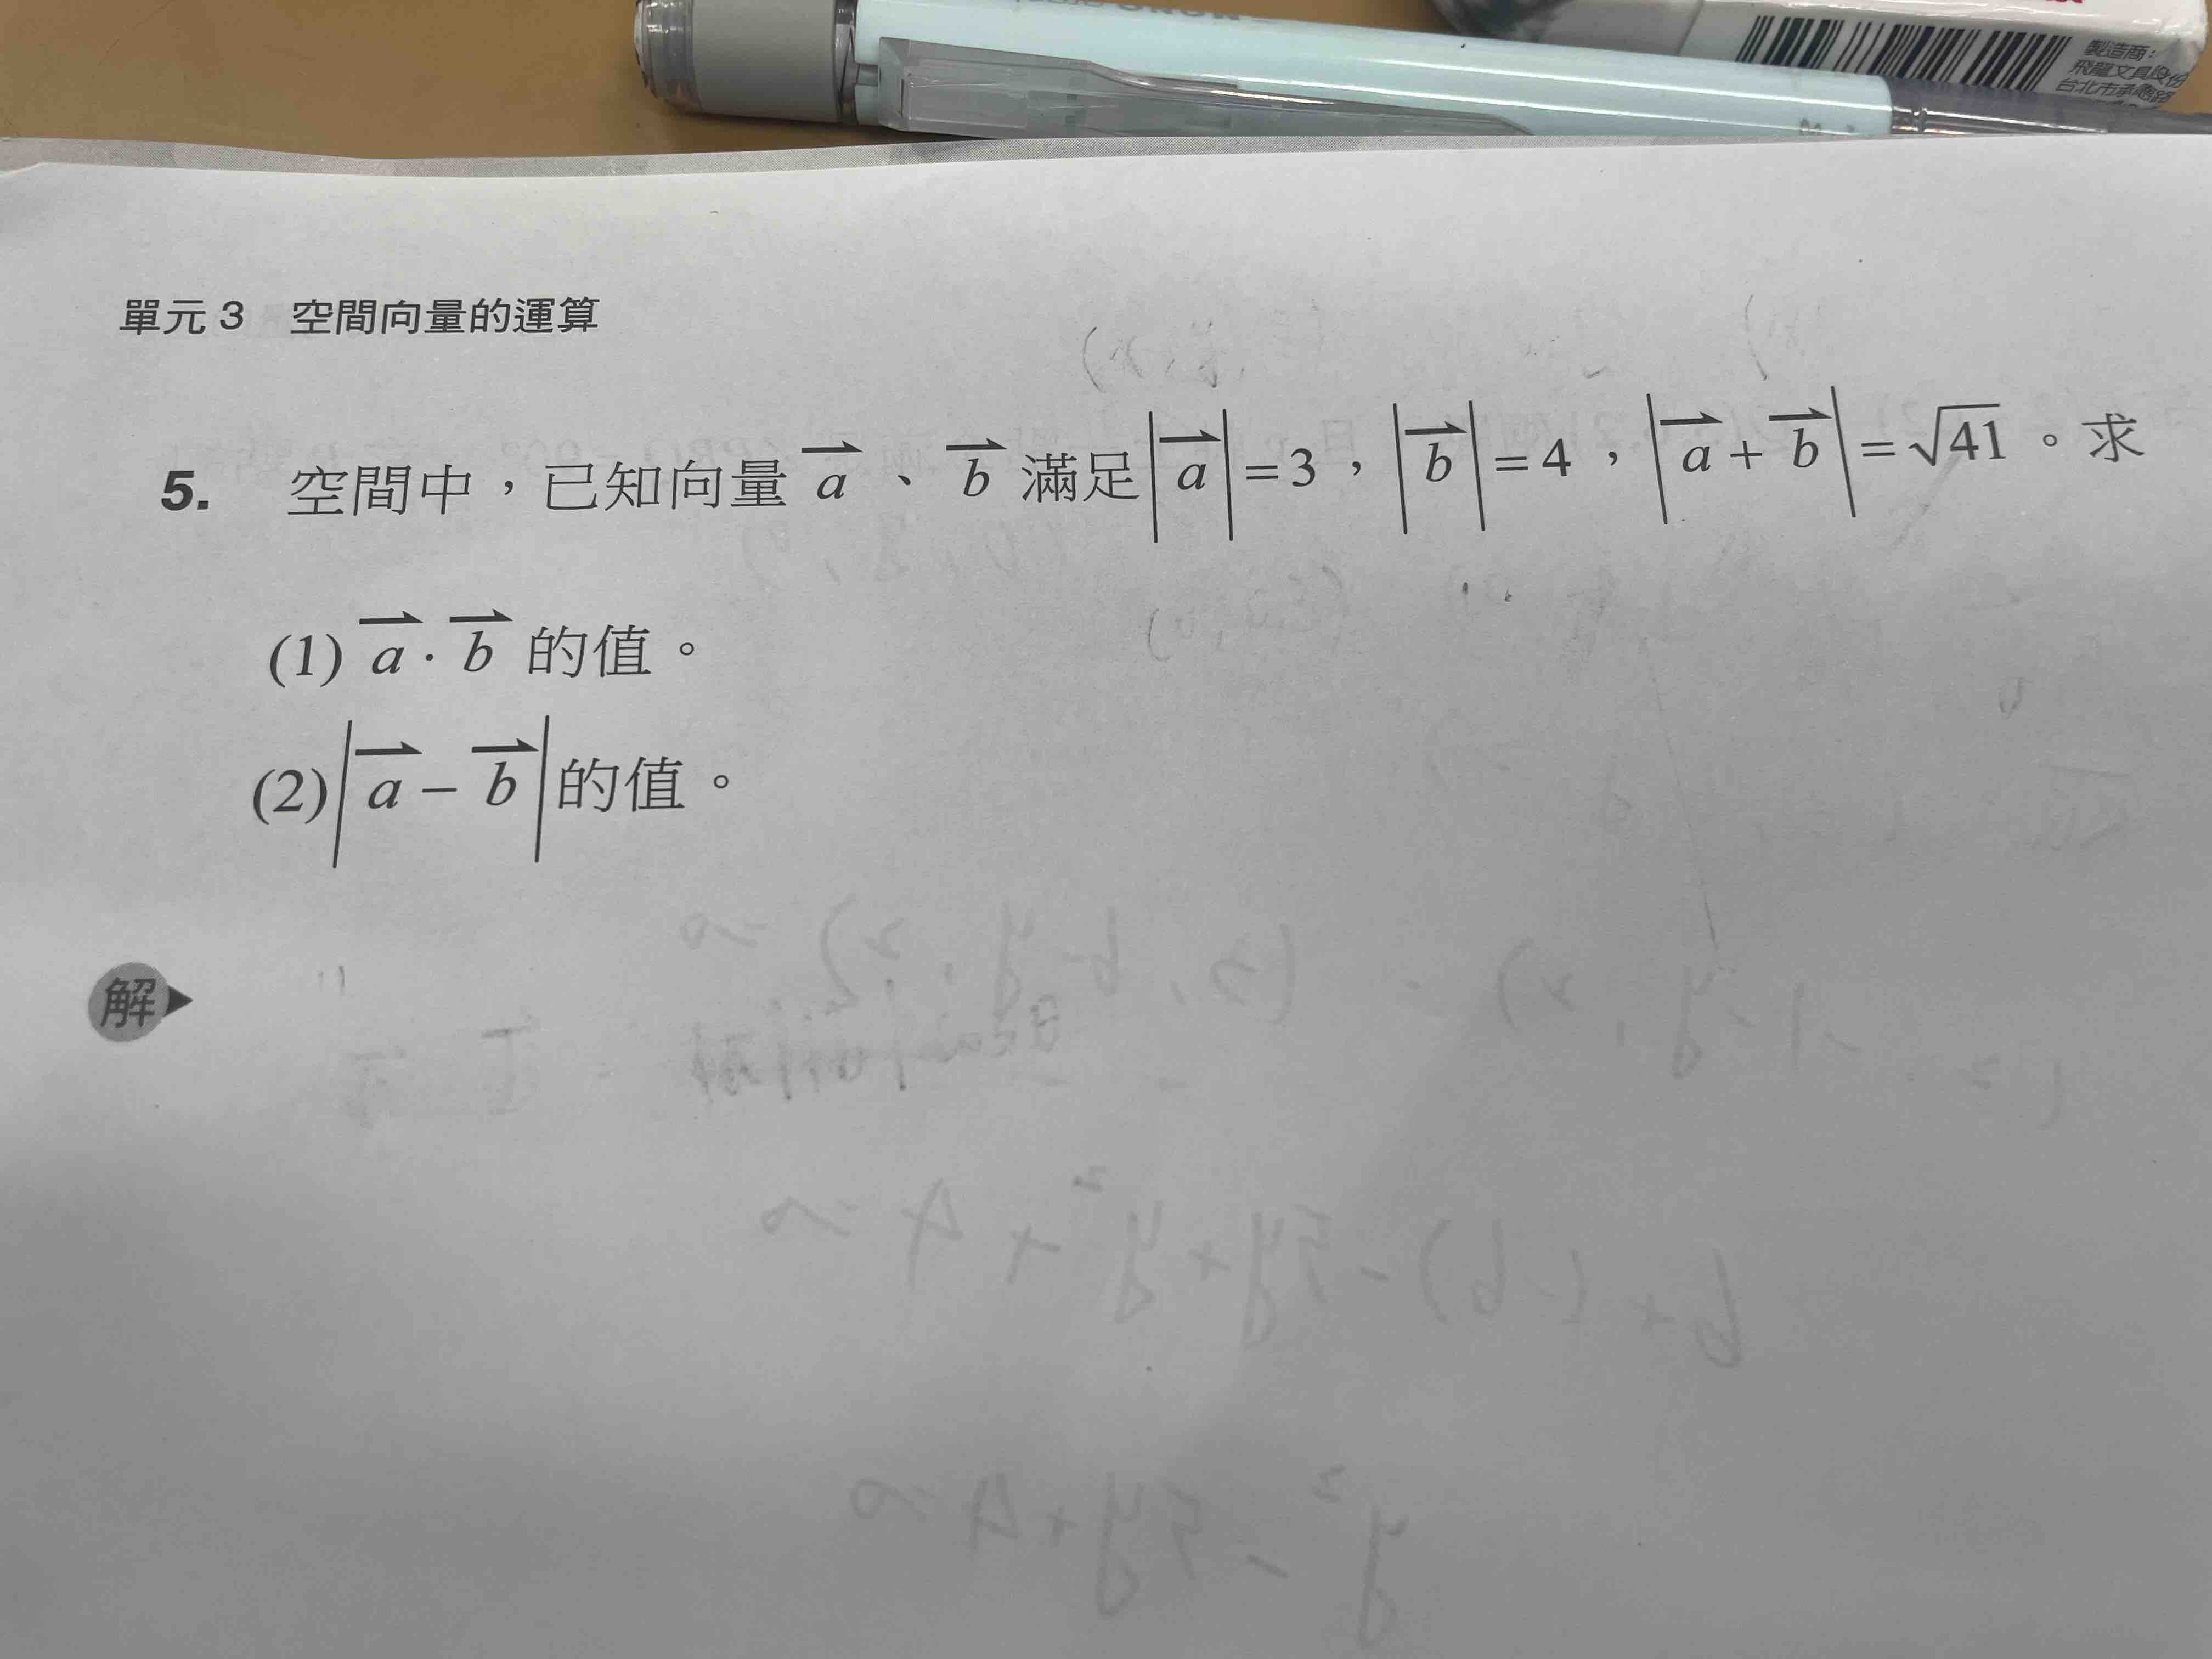 製造商：
飛龍文具股份
台北市承德路
單元 3　空間向量的運算
5.　空間中，已知向量 $\overrightarrow{a}$、$\overrightarrow{b}$ 滿足 $|\overrightarrow{a}|=3$，$|\overrightarrow{b}|=4$，$|\overrightarrow{a}+\overrightarrow{b}|=\sqrt{41}$。求
(1) $\overrightarrow{a}\cdot\overrightarrow{b}$ 的值。
(2) $|\overrightarrow{a}-\overrightarrow{b}|$ 的值。
解